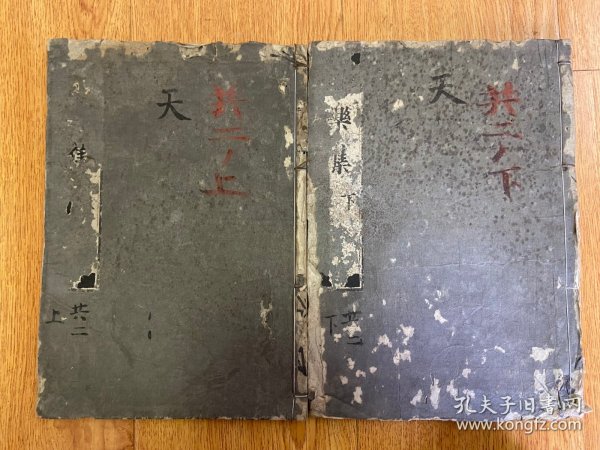 共二ノ上
天
集
共二
上
共二ノ下
天
集
下
共二
下
孔夫子旧书网
www.kongfz.com